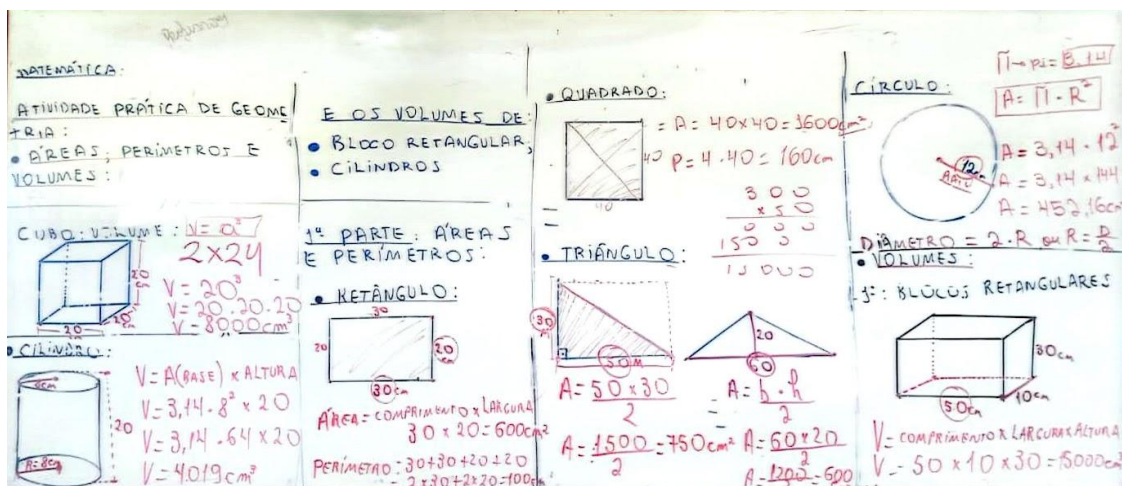 MATEMÁTICA:
ATIVIDADE PRÁTICA DE GEOME
TRIA:
• ÁREAS, PERÍMETROS E
VOLUMES:
CUBO: VOLUME: V = a³
2×24
20
cm
20
20
cm
V = 20³
V = 20.20.20
V = 8000cm³
• CILINDRO:
20
R=8cm
V = A(BASE) × ALTURA
V = 3,14 . 8² × 20
V = 3,14 . 64 × 20
V = 4.019cm³
E OS VOLUMES DE:
• BLOCO RETANGULAR;
• CILINDROS
1ª PARTE: ÁREAS
E PERÍMETROS:
• RETÂNGULO:
30
20
20
cm
30cm
ÁREA = COMPRIMENTO × LARGURA
30 × 20 = 600cm²
PERÍMETRO: 30+30+20+20
= 2×30+2×20=100cm
• QUADRADO:
40
40
= A = 40×40 = 1600cm²
P = 4.40 = 160cm
300
×50
000
1500
15000
• TRIÂNGULO:
30
M
50M
A = 50×30
2
A = 1500 = 750cm²
2
20
60
A = b . h
2
A = 60×20
2
A = 1200 = 600
CÍRCULO:
π → pi = 3,14
A = π . R²
12cm
RAIO
A = 3,14 . 12²
A = 3,14 × 144
A = 452,16cm
DIÂMETRO = 2.R ou R = D
2
• VOLUMES:
1º: BLOCOS RETANGULARES
30cm
50cm
10cm
V = COMPRIMENTO × LARGURA × ALTURA
V = 50 × 10 × 30 = 15000cm³